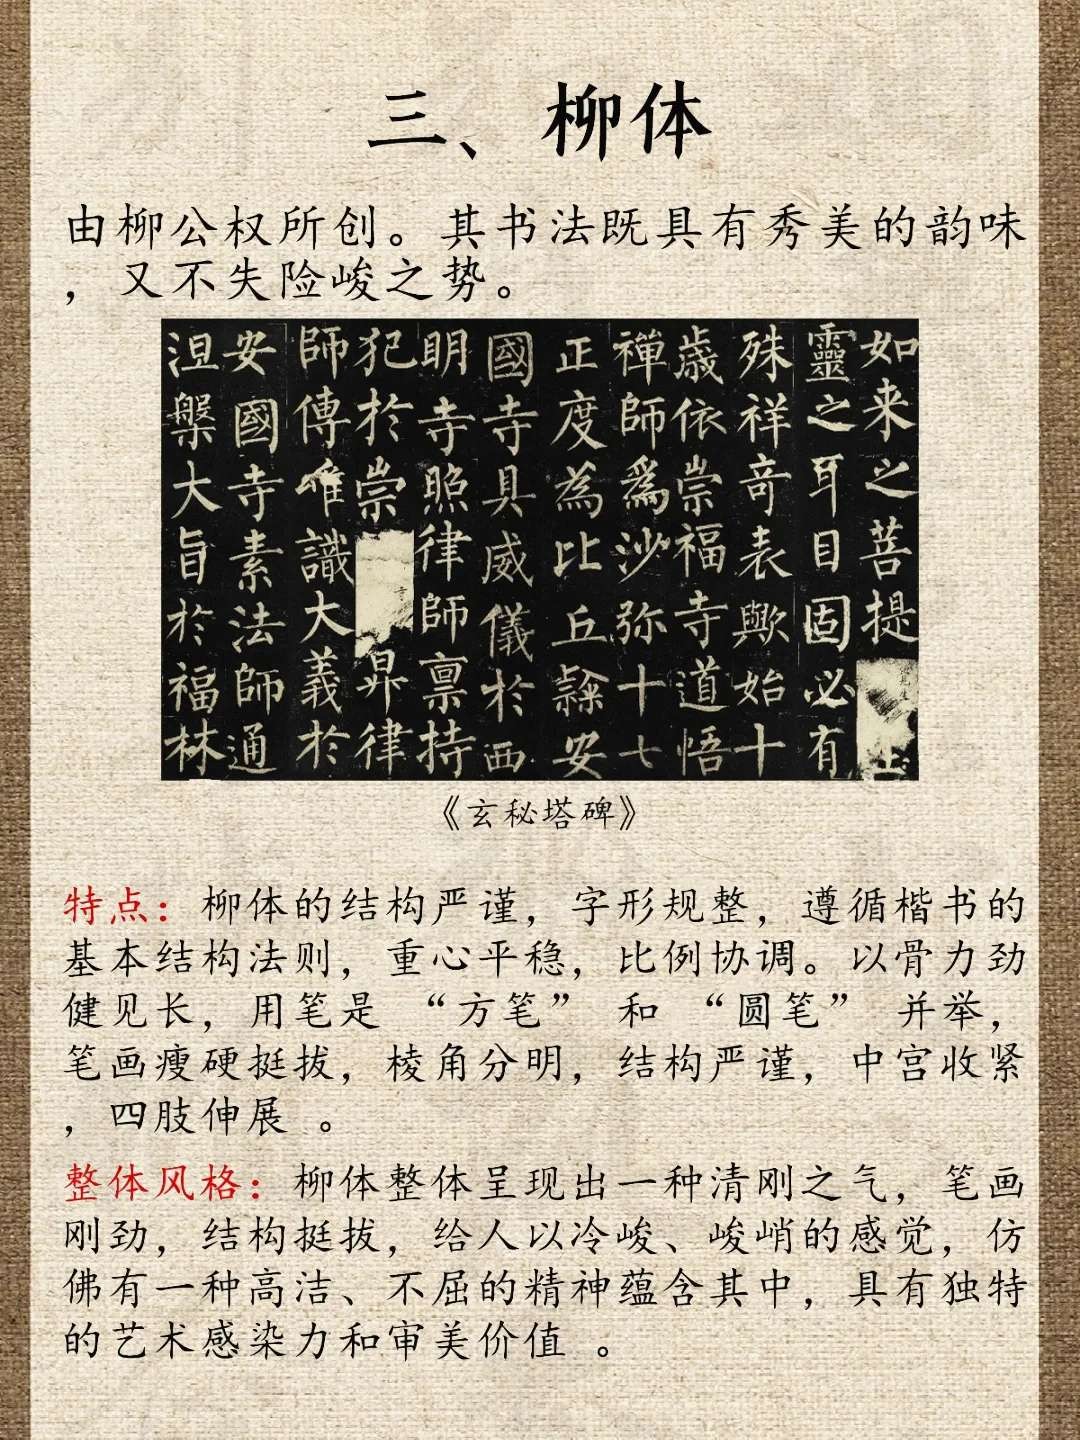 三、柳体
由柳公权所创。其书法既具有秀美的韵味
，又不失险峻之势。
如来之菩提
靈之耳目固必有
殊祥奇表歟始十
歲依崇福寺道悟
禪師爲沙弥十七
正度為比丘隸安
國寺具威儀於西
明寺照律師禀持
犯於崇昇律
師傳唯識大義於
安國寺素法師通
涅槃大旨於福林
《玄秘塔碑》
特点：柳体的结构严谨，字形规整，遵循楷书的
基本结构法则，重心平稳，比例协调。以骨力劲
健见长，用笔是“方笔” 和 “圆笔” 并举，
笔画瘦硬挺拔，棱角分明，结构严谨，中宫收紧
，四肢伸展 。
整体风格：柳体整体呈现出一种清刚之气，笔画
刚劲，结构挺拔，给人以冷峻、峻峭的感觉，仿
佛有一种高洁、不屈的精神蕴含其中，具有独特
的艺术感染力和审美价值 。